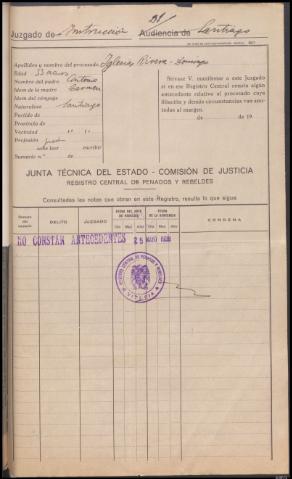 21/
Juzgado de Instrucción Audiencia de Santiago
Apellidos y nombre del procesado Iglesias Rivera
Edad 33 años
Nombre del padre Antonio
Idem de la madre Carmen
Idem del cónyuge
Naturaleza Santiago
Partido de "
Provincia de "
Vecindad " "
Profesión
sabe leer escribir
Sumario n.º de
Sírvase V. manifestar a este Juzgado
si en ese Registro Central consta algún
antecedente relativo al procesado cuya
filiación y demás circunstancias van ano-
tadas al margen.
de de 19
JUNTA TÉCNICA DEL ESTADO - COMISIÓN DE JUSTICIA
REGISTRO CENTRAL DE PENADOS Y REBELDES
Consultadas las notas que obran en este Registro, resulta lo que sigue
DELITO JUZGADO CONDENA
Día Mes Año Día Mes Año
NO CONSTAN ANTECEDENTES 25 MAYO 1938
REGISTRO CENTRAL DE PENADOS Y REBELDES